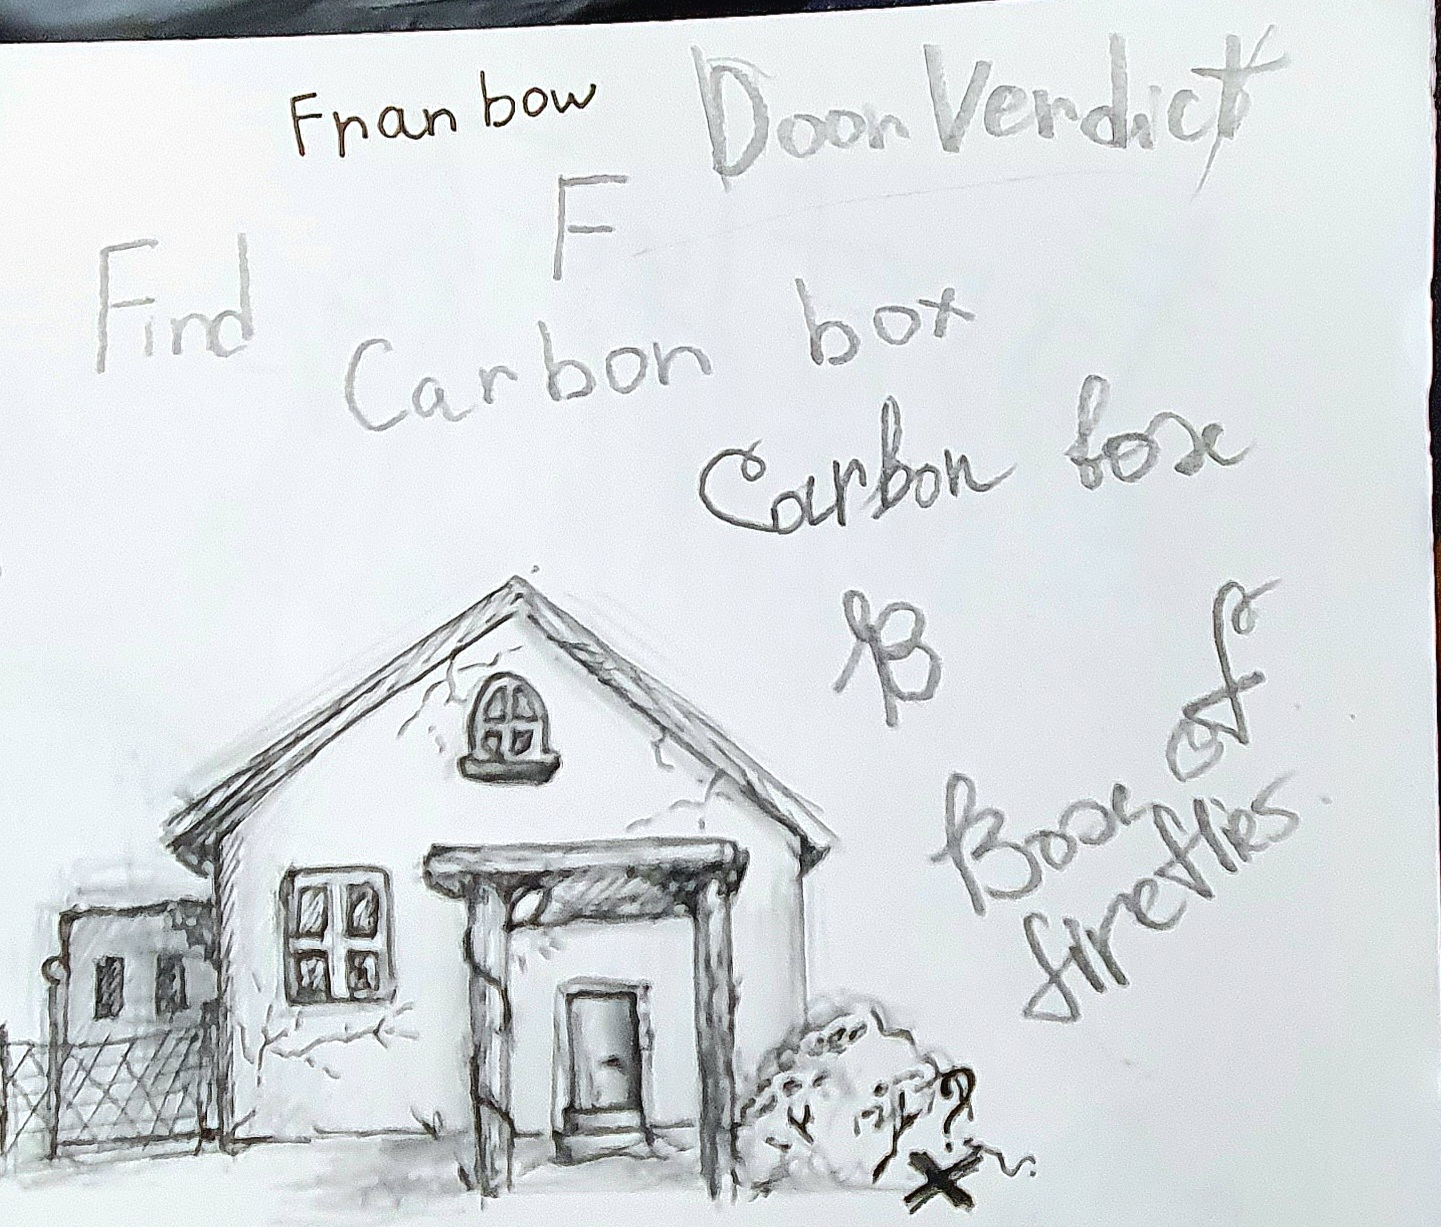 Fran bow
Door Verdict
F
Find
Carbon box
Carbon box
B
Box of
fireflies
?